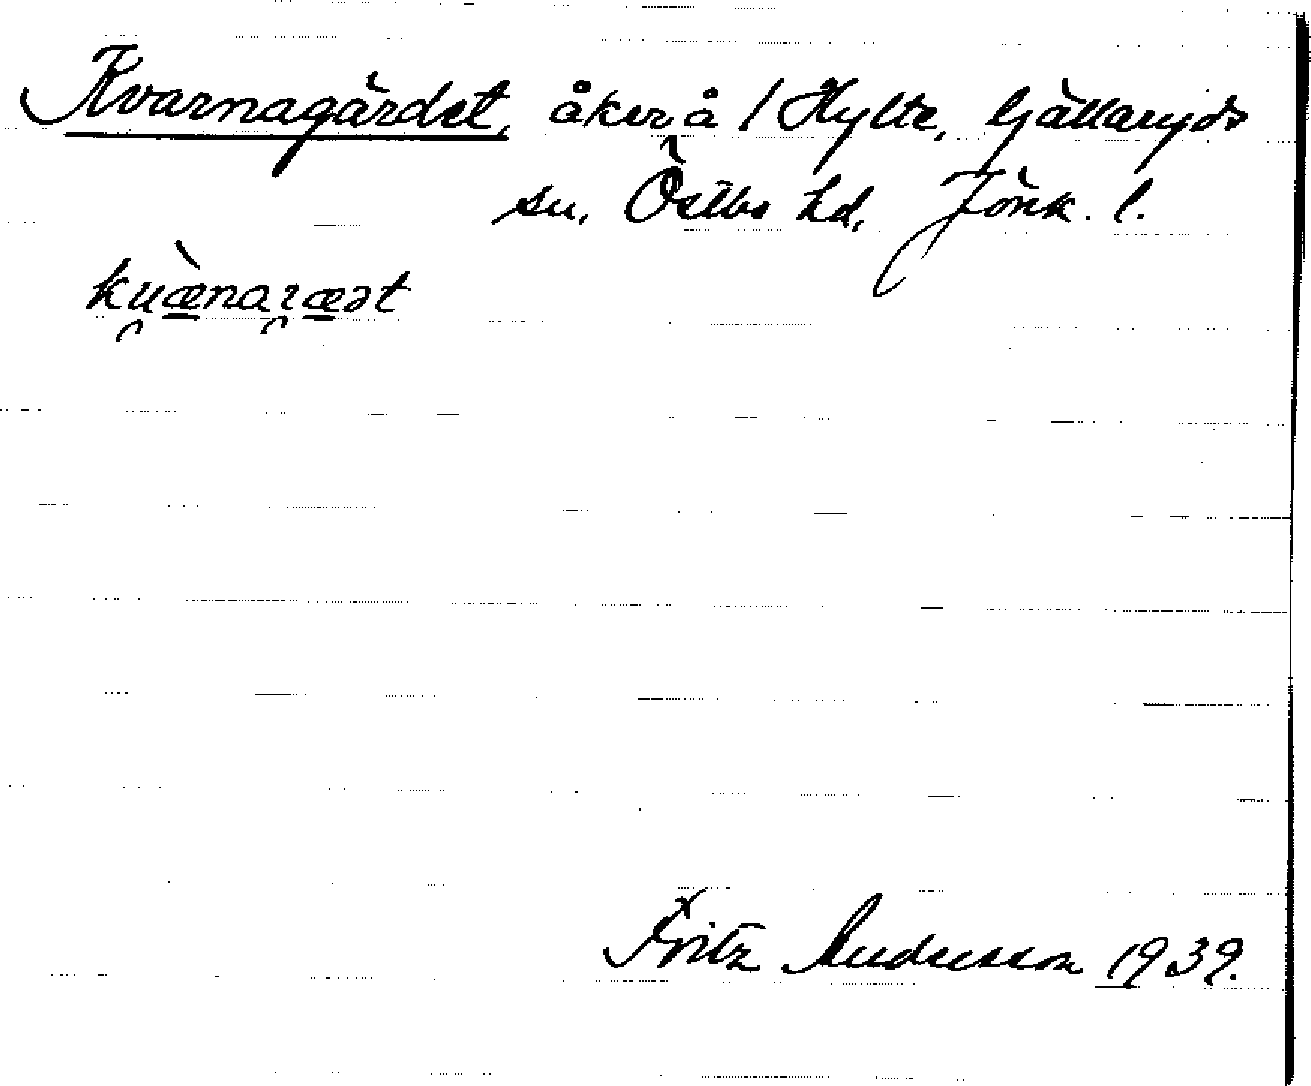 Kvarnagärdet, åker å / Hylte, Gällaryds
sn, Östbo hd, Jönk. l.
ku̯æ̀naɿæət
Fritz Andersson 1939.